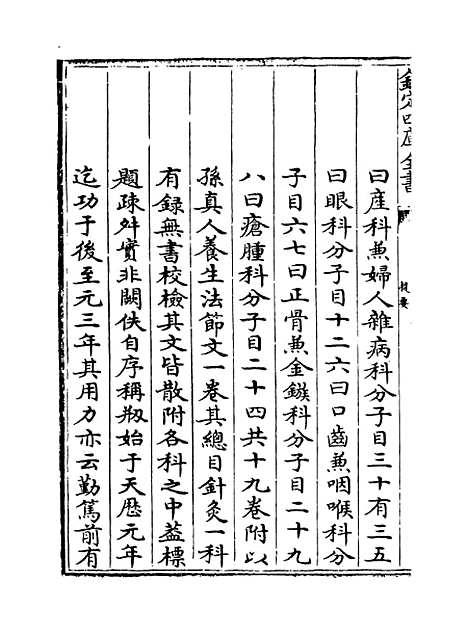 欽定四庫全書
提要
曰産科兼婦人雜病科分子目三十有三五
曰眼科分子目十二六曰口齒兼咽喉科分
子目六七曰正骨兼金鏃科分子目二十九
八曰瘡腫科分子目二十四共十九卷附以
孫真人養生法節文一卷其總目針灸一科
有録無書校檢其文皆散附各科之中葢標
題疎舛實非闕佚自序稱剏始于天厯元年
迄功于後至元三年其用力亦云勤篤前有